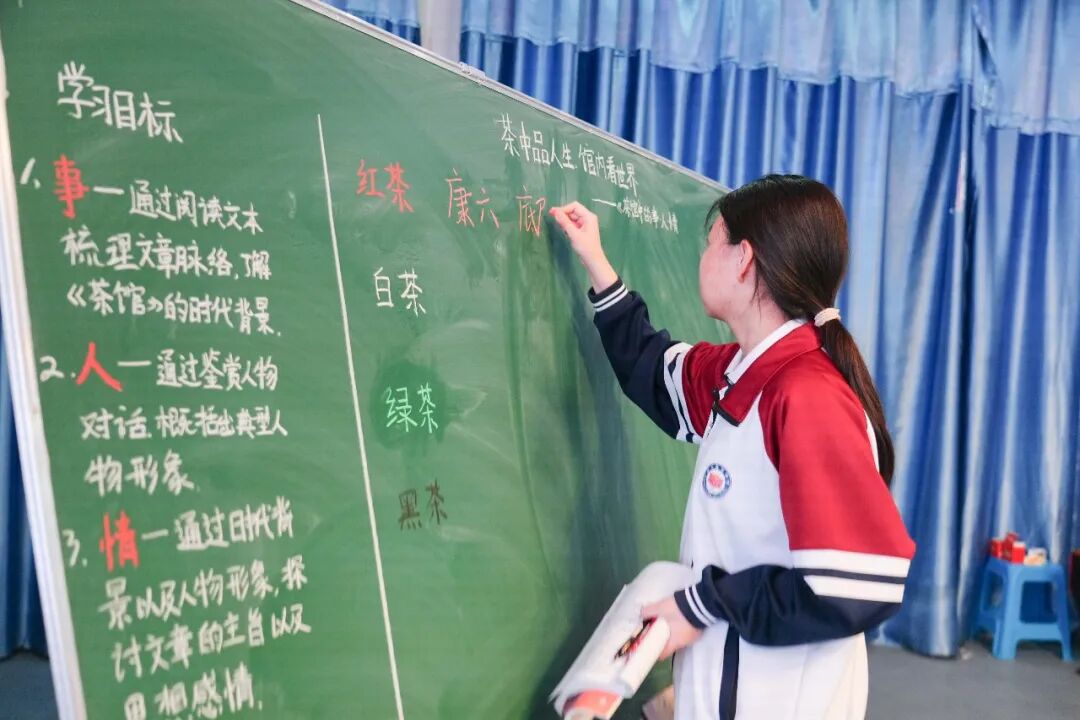 学习目标
1、事—通过阅读文本
梳理文章脉络,了解
《茶馆》的时代背景.
2.人—通过鉴赏人物
对话.概括出典型人
物形象.
3、情—通过时代背
景以及人物形象,探
讨文章的主旨以及
思想感情.
茶中品人生.馆内看世界
——《茶馆》中的事·人·情
红茶 康六
白茶
绿茶
黑茶